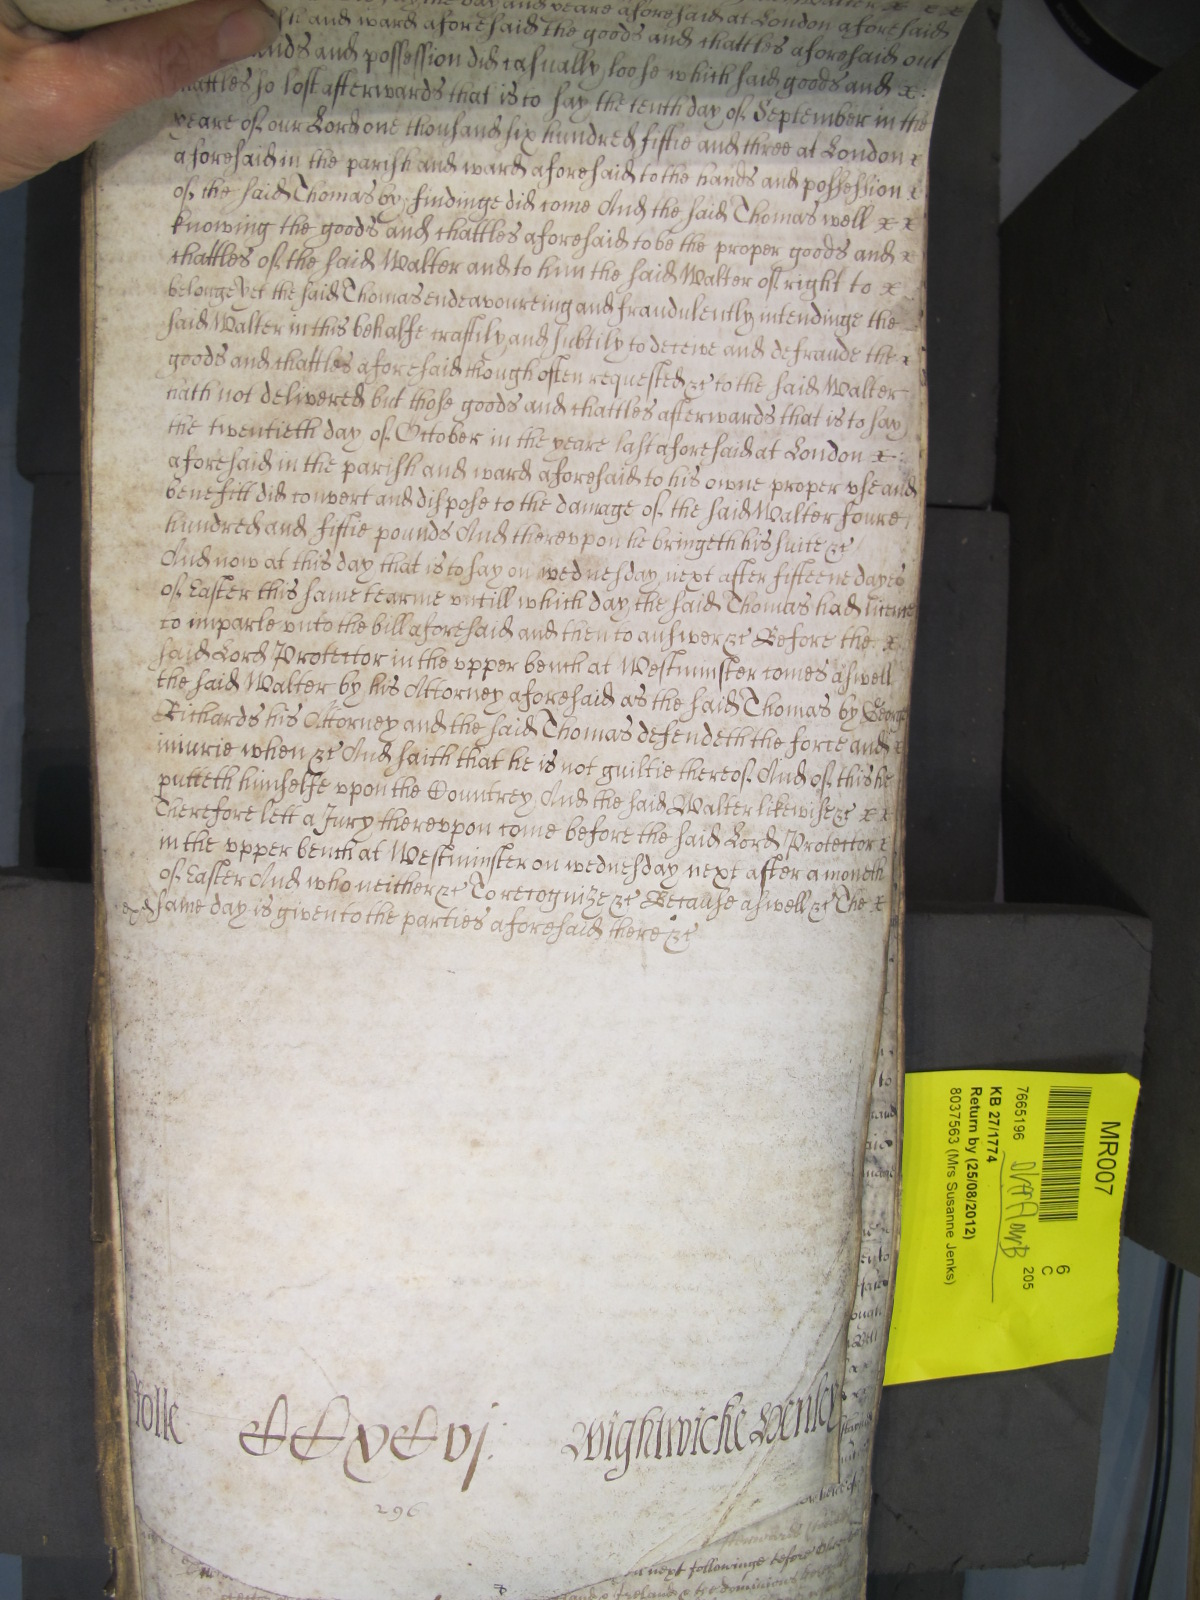 day and yeare aforesaid at London aforesaid
and ward aforesaid the goods and chattles aforesaid out
hands and possession did casually loose which said goods and x
chattles so lost afterwards that is to say the tenth day of September in the
yeare of our Lord one thousand six hundred fiftie and three at London x
aforesaid in the parish and ward aforesaid to the hands and possession x
of the said Thomas by findinge did come And the said Thomas well x x
knowing the goods and chattles aforesaid to be the proper goods and x
chattles of the said Walter and to him the said Walter of right to x
belonge yet the said Thomas endeavoureing and fraudulently intendinge the
said Walter in this behalfe craftily and subtily to deceive and defraude the x
goods and chattles aforesaid though often requested &c to the said Walter
hath not delivered but those goods and chattles afterwards that is to say
the twentieth day of October in the yeare last aforesaid at London x
aforesaid in the parish and ward aforesaid to his owne proper use and
benefitt did convert and dispose to the damage of the said Walter foure
hundred and fiftie pounds And thereupon he bringeth his suite &c
And now at this day that is to say on wednesday next after fifteene dayes
of Easter this same tearme untill which day the said Thomas had licence
to imparle unto the bill aforesaid and then to answer &c Before the x
said Lord Protector in the upper bench at Westminster comes aswell
the said Walter by his Attorney aforesaid as the said Thomas by George
Richards his Attorney and the said Thomas defendeth the force and x
iniurie when &c And saith that he is not guiltie thereof And of this he
putteth himselfe upon the Countrey And the said Walter likewise &c x x
Therefore lett a Jury thereupon come before the said Lord Protector x
in the upper bench at Westminster on wednesday next after a moneth
of Easter And who neither &c To recognize &c Because aswell &c The x
same day is given to the parties aforesaid there &c
Rolle CCxCvj Wightwicke Henley
296
next followinge before
Ireland & the dominions
MR007
7665196
KB 27/1774
Return by (25/08/2012)
8037563 (Mrs Susanne Jenks)
6
C
205